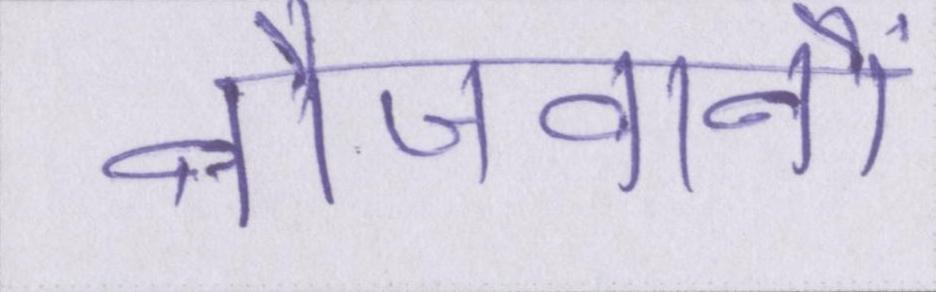 नौजवानों